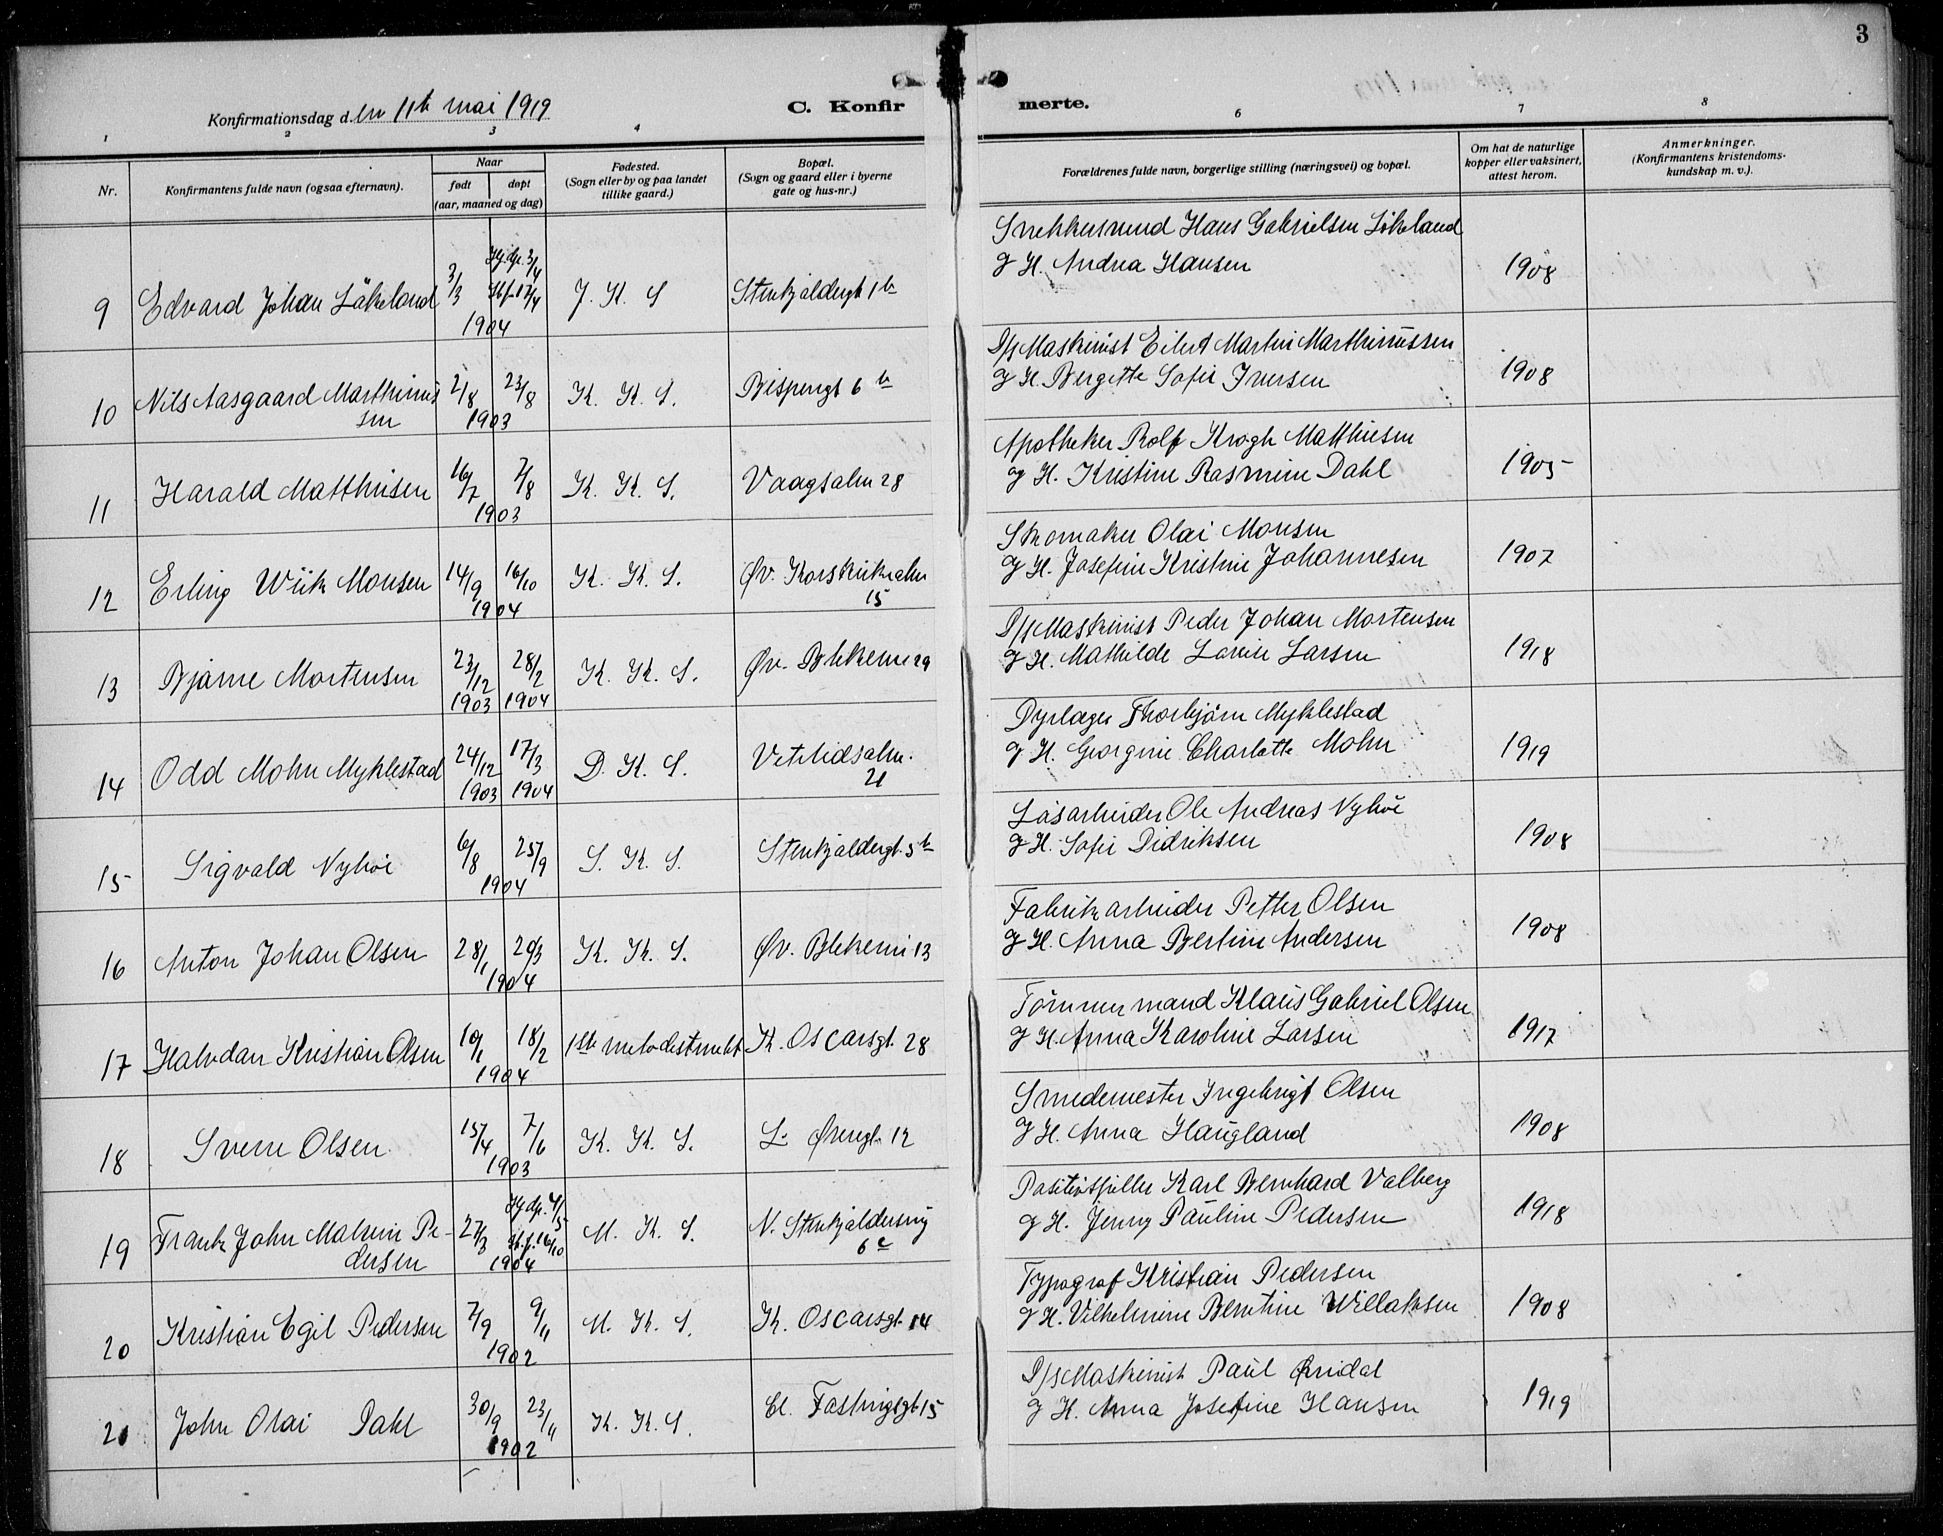 3
Konfirmationsdag den 11te mai 1919
C. Konfirmerte.
1 2 3 4 6 7 8
Nr.
Konfirmantens fulde navn (ogsaa efternavn).
Naar
født
døpt
(aar, maaned og dag)
Fødested.
(Sogn eller by og paa landet
tillike gaard.)
Bopæl.
(Sogn og gaard eller i byerne
gate og hus-nr.)
Forældrenes fulde navn, borgerlige stilling (næringsvei) og bopæl.
Om hat de naturlige
kopper eller vaksinert,
attest herom.
Anmerkninger.
(Konfirmantens kristendoms-
kundskap m. v.).
9 Edvard Johan Løkeland 3/3 Hj. dp. 3/4 St. f. 17/4 1904 J. K. S Stenkjeldergt 1b
Snekkersvend Hans Gabrielsen Løkeland
g H. Andrea Hansen 1908
10 Nils Aasgaard Marthinus
sen 2/8 23/8 1903 K. K. S. Bispengt 6b
D/s Maskinist Eilert Martin Marthinussen
g H. Bergitte Sofie Iversen 1908
11 Harald Matthiesen 16/7 7/8 1903 K. K. S. Vaagsalm 28
Apotheker Rolf Krogh Matthiesen
g H. Kristine Rasmine Dahl 1905
12 Erling Wiik Monsen 14/9 16/10 1904 K. K. S. Øv. Korskirkealm
15
Skomaker Olai Monsen
g H. Josefine Kristine Johannesen 1907
13 Bjarne Mortensen 23/12 1903 28/2 1904 K. K. S. Øv. Blekevei 29
D/s Maskinist Peder Johan Mortensen
g H. Mathilde Lovise Larsen 1918
14 Odd Mohn Myklestad 24/12 1903 17/3 1904 D. K. S. Vetrlidsalm.
21
Dyrlæge Thorbjørn Myklestad
g H. Georgine Charlotte Mohn 1919
15 Sigvald Nyhøi 6/8 25/9 1904 S. K. S. Stenkjeldergt. 5b
Løsarbeider Ole Andreas Nyhøi
g H. Sofie Didriksen 1908
16 Anton Johan Olsen 28/1 20/3 1904 K. K. S. Øv. Blekevei 13
Fabrikarbeider Petter Olsen
g H. Anna Bertine Andersen 1908
17 Halvdan Kristian Olsen 10/1 18/2 1904 1ste metodistmkt K. Oscarsgt. 28
Tømmermand Klaus Gabriel Olsen
g H. Anna Karoline Larsen 1917
18 Sverre Olsen 15/4 7/6 1903 K. K. S. L. Øvregt. 12
Smedemester Ingebrigt Olsen
g H. Anna Haugland 1908
19 Frank John Malvin Pe-
dersen 27/3 Hj. dp. 4/5 St. f. 16/10 1904 M. K. S. N. Stenkjeldersmg
6c
Positivspiller Karl Bernhard Valberg
g H. Jenny Pauline Pedersen 1918
20 Kristian Egil Pedersen 7/9 9/11 1902 M. K. S. K. Oscarsgt. 14
Typograf Kristian Pedersen
g H. Vilhelmine Berntine Willaksen 1908
21 John Olai Dahl 30/9 23/11 1902 K. K. S. Cl. Fastingsgt 15
D/s Maskinist Paul Øvridal
g H. Anna Josefine Hansen 1919